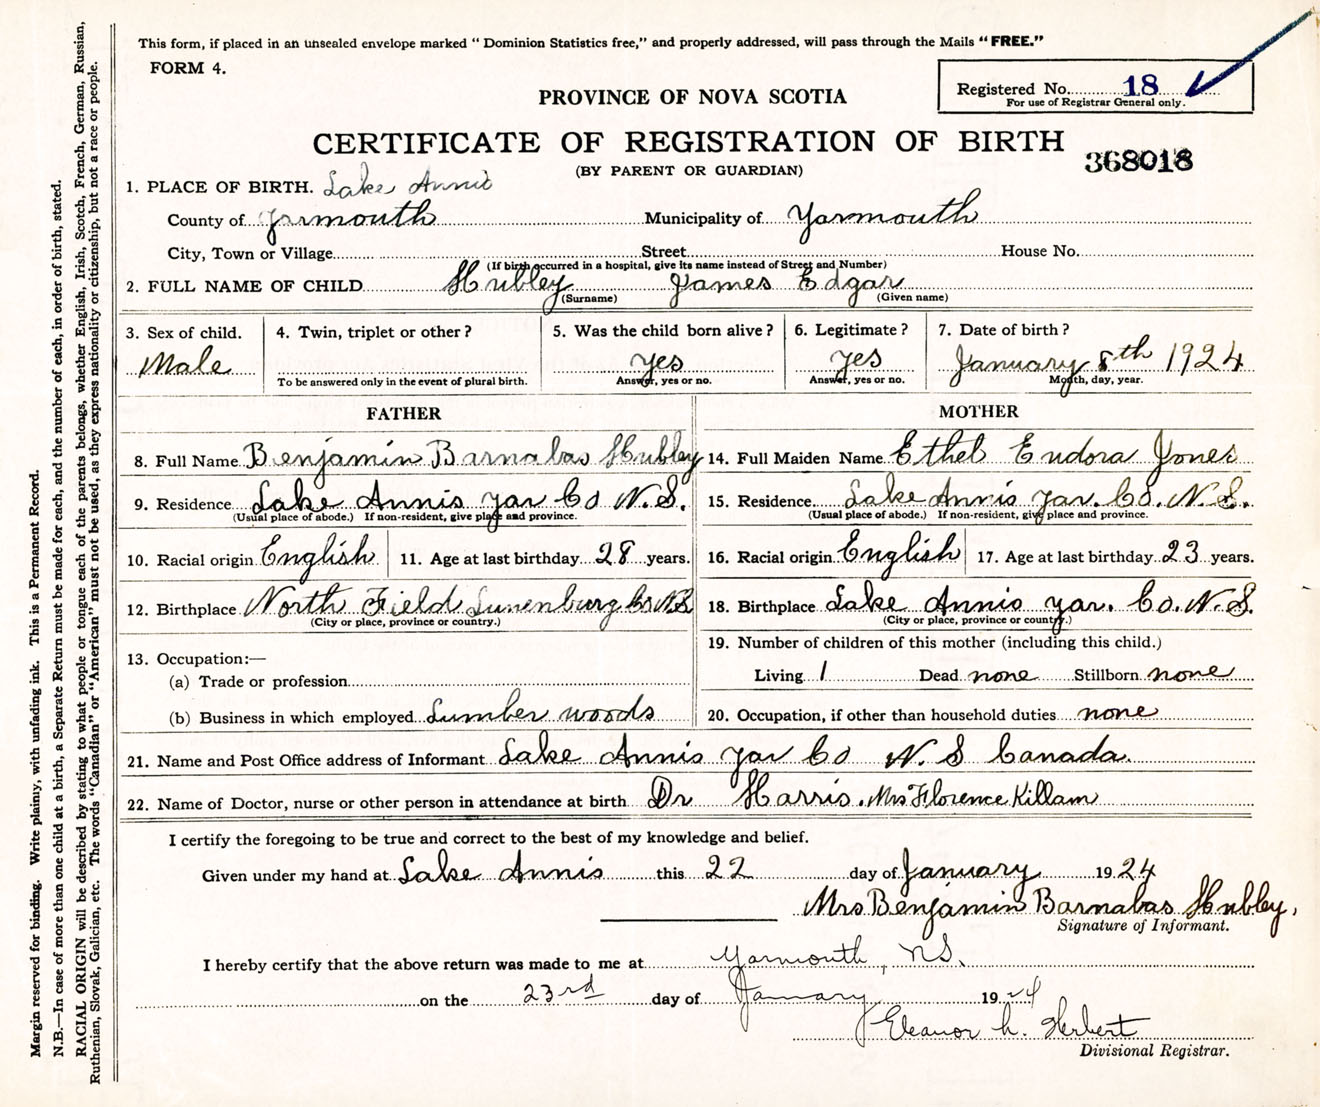 This form, if placed in an unsealed envelope marked “ Dominion Statistics free,” and properly addressed, will pass through the Mails “ FREE.”
FORM 4.
Registered No. 18
For use of Registrar General only.
PROVINCE OF NOVA SCOTIA
CERTIFICATE OF REGISTRATION OF BIRTH
368018
(BY PARENT OR GUARDIAN)
1. PLACE OF BIRTH. Lake Annis
County of Yarmouth Municipality of Yarmouth
City, Town or Village Street House No.
(If birth occurred in a hospital, give its name instead of Street and Number)
2. FULL NAME OF CHILD Hubley James Edgar
(Surname) (Given name)
3. Sex of child. 4. Twin, triplet or other ? 5. Was the child born alive ? 6. Legitimate ? 7. Date of birth ?
Male yes yes January 8th 1924
To be answered only in the event of plural birth. Answer, yes or no. Answer, yes or no. Month, day, year.
FATHER MOTHER
8. Full Name Benjamin Barnabas Hubley 14. Full Maiden Name Ethel Eudora Jones
9. Residence Lake Annis Yar Co N.S. 15. Residence Lake Annis Yar. Co. N.S.
(Usual place of abode.) If non-resident, give place and province. (Usual place of abode.) If non-resident, give place and province.
10. Racial origin English 11. Age at last birthday 28 years. 16. Racial origin English 17. Age at last birthday 23 years.
12. Birthplace North Field Lunenburg Co N.S. 18. Birthplace Lake Annis Yar. Co. N.S.
(City or place, province or country.) (City or place, province or country.)
13. Occupation:— 19. Number of children of this mother (including this child.)
(a) Trade or profession Living 1 Dead none Stillborn none
(b) Business in which employed Lumber woods 20. Occupation, if other than household duties none
21. Name and Post Office address of Informant Lake Annis Yar Co N.S Canada.
22. Name of Doctor, nurse or other person in attendance at birth Dr Harris. Mrs Florence Killam
I certify the foregoing to be true and correct to the best of my knowledge and belief.
Given under my hand at Lake Annis this 22 day of January 1924
Mrs Benjamin Barnabas Hubley,
Signature of Informant.
I hereby certify that the above return was made to me at Yarmouth, N.S.
on the 23rd day of January 1924
Eleanor h. Herbert
Divisional Registrar.
Margin reserved for binding. Write plainly, with unfading ink. This is a Permanent Record.
N.B.—In case of more than one child at a birth, a Separate Return must be made for each, and the number of each, in order of birth, stated.
RACIAL ORIGIN will be described by stating to what people or tongue each of the parents belongs, whether English, Irish, Scotch, French, German, Russian,
Ruthenian, Slovak, Galician, etc. The words “Canadian” or “American” must not be used, as they express nationality or citizenship, but not a race or people.